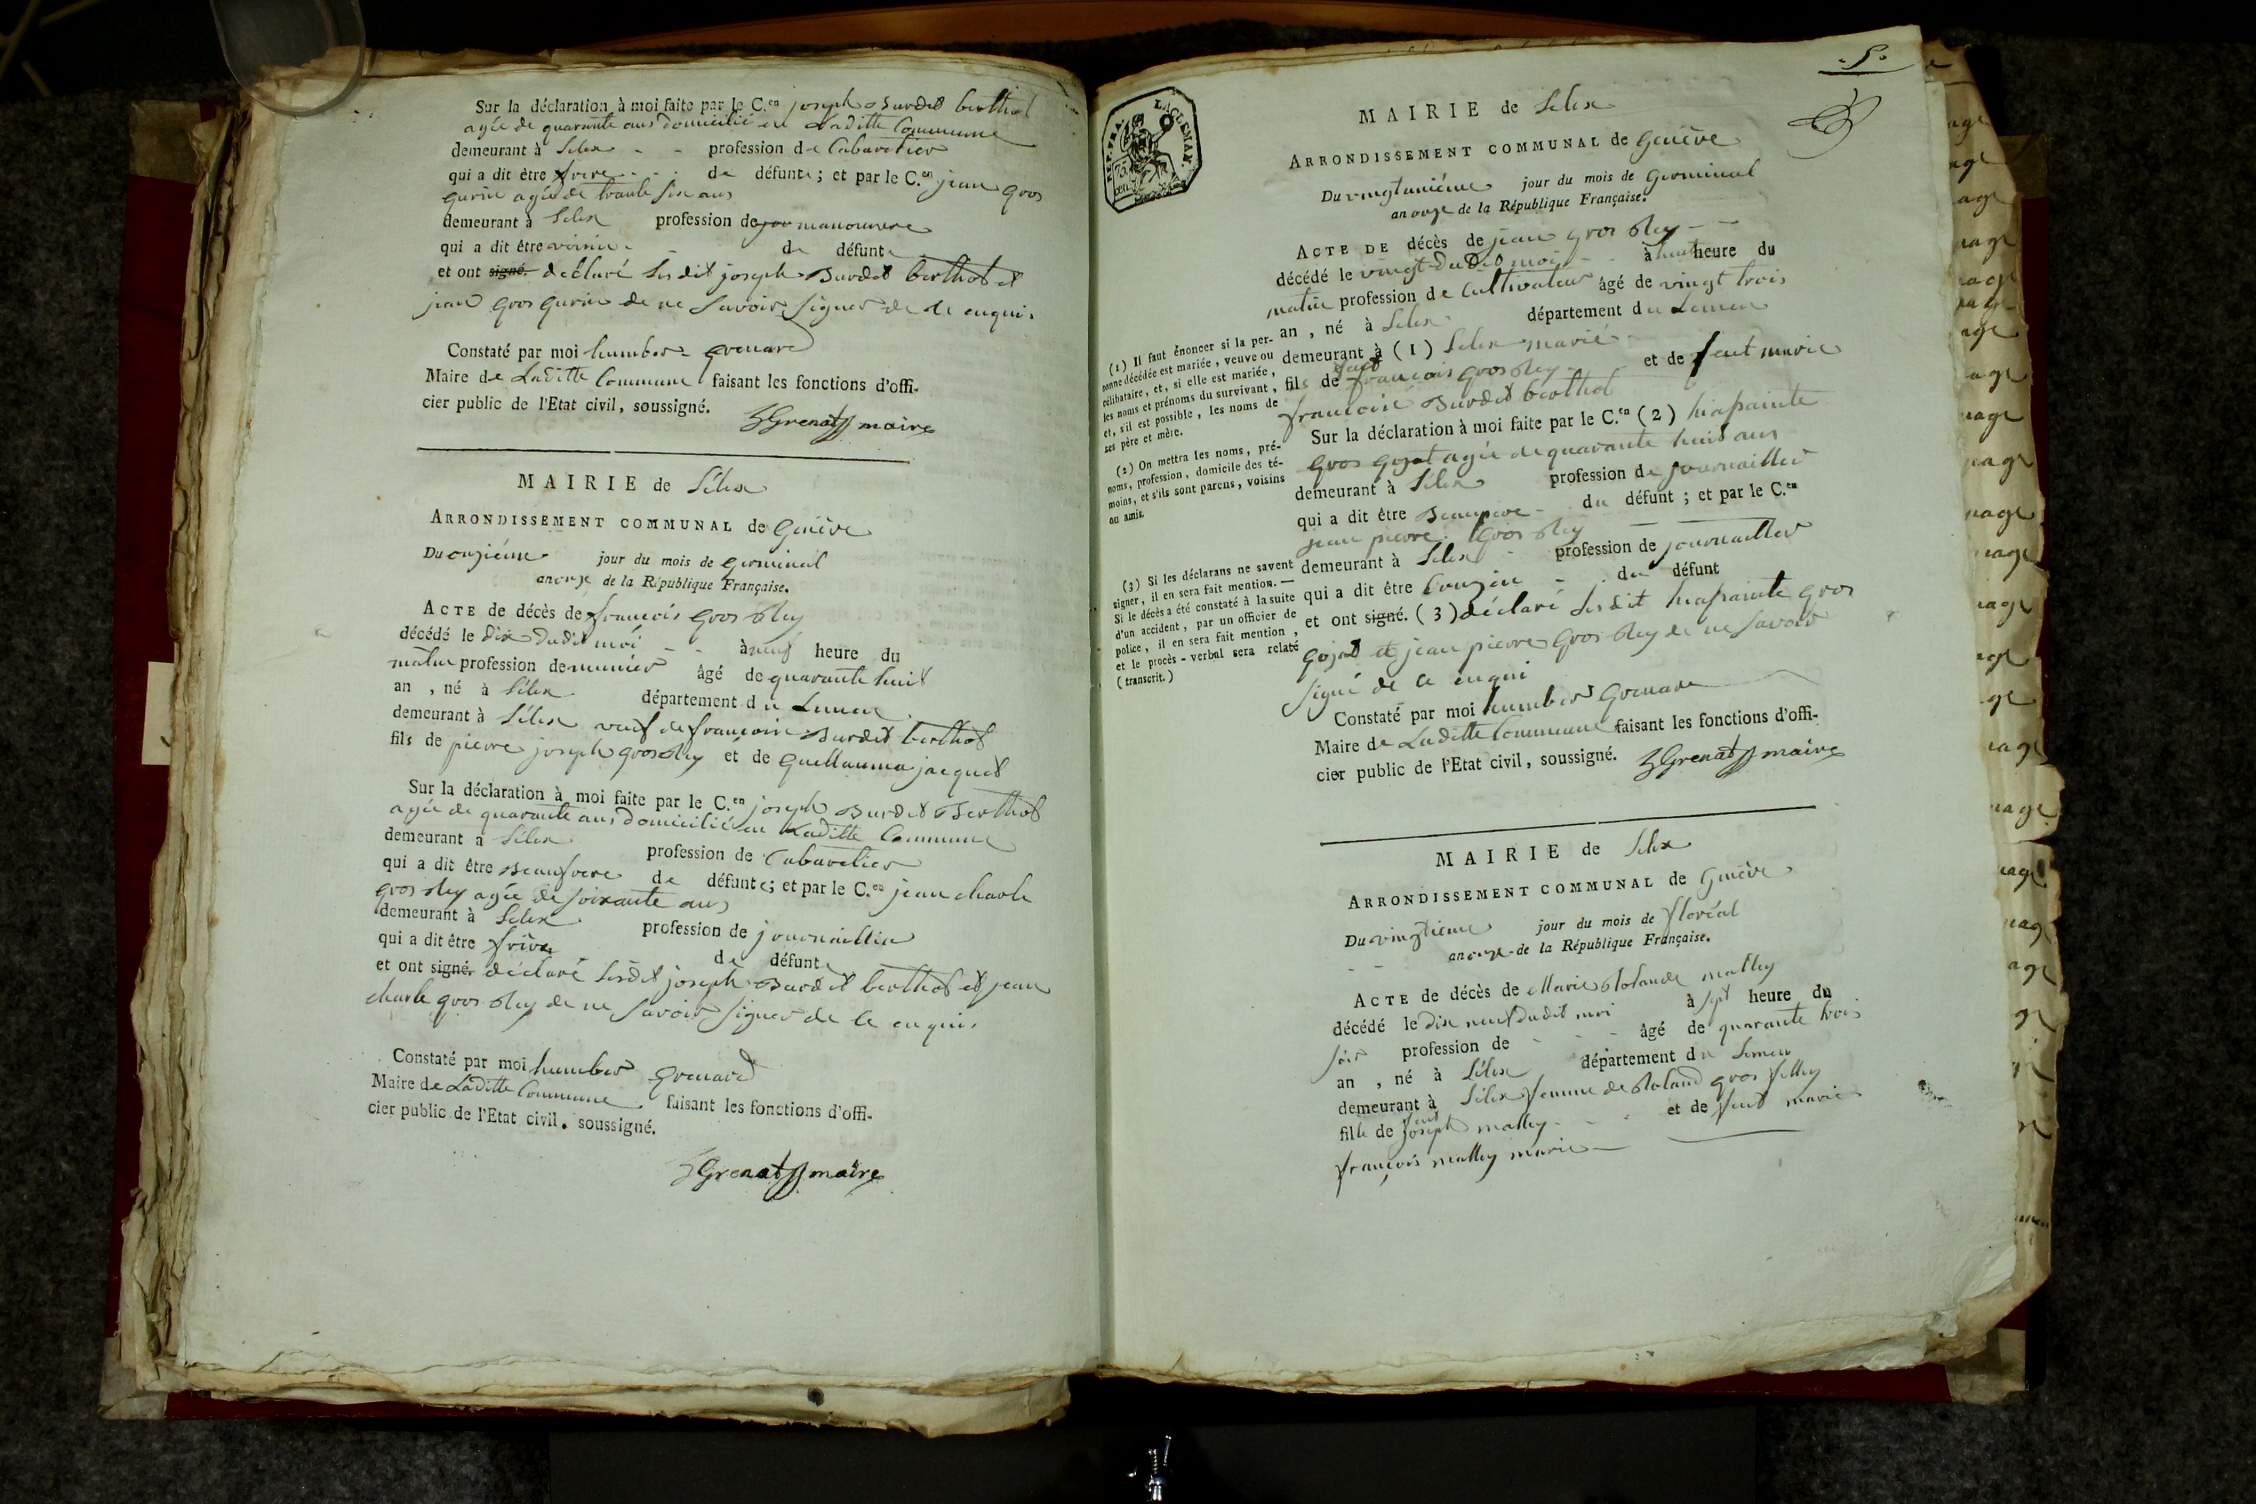 Sur la déclaration à moi faite par le C.en joseph Burdet berthot
agée de quarante ans domicilié en Laditte Commune
demeurant à Silex - - profession de Cabaretier
qui a dit être frere - - de défunte; et par le C.en jean gros
gurin agée de trante six ans
demeurant à Silex profession de manouvre
qui a dit être voisin - de défunte
et ont signé. déclaré Lesdit joseph Burdet berthot et
jean gros gurin de ne Savoir Signer de de enquis
Constaté par moi humber grenard
Maire de Laditte Commune faisant les fonctions d'offi-
cier public de l'Etat civil, soussigné.
Grenat maire
MAIRIE de Silex
ARRONDISSEMENT COMMUNAL de Genève
Du onzième jour du mois de germinal
an onze de la République Française.
ACTE de décès de françois gros Bley
décédé le dix dudit moi - - à neuf heure du
matin profession de munier âgé de quarante huit
an , né à Silex département du Leman
demeurant à Silex veuf de francoise Burdet berthot
fils de pierre joseph gros bley et de Guellauma jacquet
Sur la déclaration à moi faite par le C.en joseph Burdet Berthot
agée de quarante ans domicilié en Laditte Commune
demeurant à Silex profession de Cabaretier
qui a dit être Beaufrere de défunte; et par le C.en jean charle
gros bley agée de soixante ans
demeurant à Silex profession de journaillier
qui a dit être frère de défunte
et ont signé. déclaré Lesdit joseph Burdet berthot et jean
charle gros bley de ne Savoir Signer de Ce enquis
Constaté par moi humber grenard
Maire de Laditte Commune faisant les fonctions d'offi-
cier public de l'Etat civil. soussigné.
Grenat maire
5.
REP. FRA. 75 cen LAC LEMAN.
MAIRIE de Silex
ARRONDISSEMENT COMMUNAL de Genève
Du vingtunième jour du mois de Germinal
an onze de la République Française.
ACTE DE décès de jean gros bley - -
décédé le vingt dudit moi - à huit heure du
matin profession de Cultivateur âgé de vingt trois
an , né à Silex département du Leman
demeurant à (1) Silex marié -
fils de feut françois gros bley - et de feut marie
francoise Burdet berthot
Sur la déclaration à moi faite par le C.en (2) hiasainte
gros gojat agée de quarante huit ans
demeurant à Silex profession de journaillier
qui a dit être Beaupere - du défunt ; et par le C.en
jean pierre gros bley
demeurant à Silex - profession de journaillier
qui a dit être Couzin - du défunt
et ont signé. (3) déclaré Lesdit hiasainte gros
gojat et jean pierre gros bley de ne Savoir
signé de ce enqui
Constaté par moi humber Grenard
Maire de Laditte Commune faisant les fonctions d'offi-
cier public de l'Etat civil, soussigné.
Grenat maire
(1) Il faut énoncer si la per-
sonne décédée est mariée, veuve ou
célibataire, et, si elle est mariée,
les noms et prénoms du survivant,
et, s'il est possible, les noms de
ses père et mère.
(2) On mettra les noms, pré-
noms, profession, domicile des té-
moins, et s'ils sont parens, voisins
ou amis.
(3) Si les déclarans ne savent
signer, il en sera fait mention. —
Si le décès a été constaté à la suite
d'un accident, par un officier de
police, il en sera fait mention,
et le procès-verbal sera relaté
(transcrit.)
MAIRIE de Silex
ARRONDISSEMENT COMMUNAL de Genève
Du vingtieme jour du mois de floréal
an onze de la République Française.
ACTE de décès de Marie Rolande malley
décédé le dix neuf dudit moi à sept heure du
soir profession de - - âgé de quarante trois
an , né à Silex département du Leman
demeurant à Silex femme de Roland gros filley
fille de feut joseph malley - - et de feut marie
françois malley marié